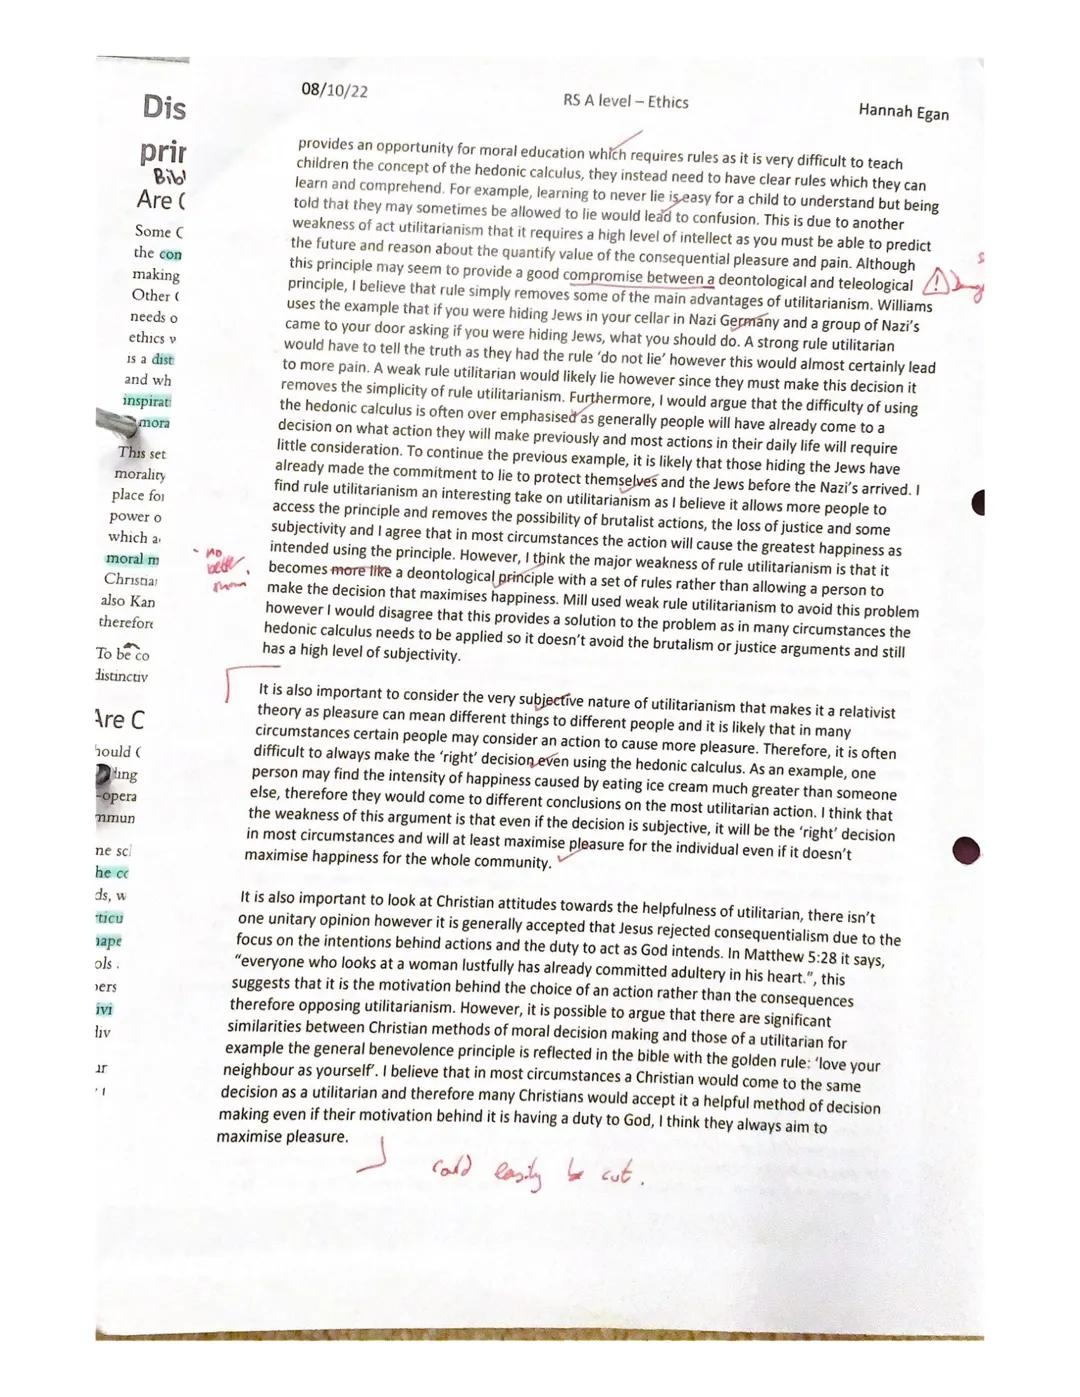 08/10/22
RS A level – Ethics
Hannah Egan
provides an opportunity for moral education which requires rules as it is very difficult to teach
children the concept of the hedonic calculus, they instead need to have clear rules which they can
learn and comprehend. For example, learning to never lie is easy for a child to understand but being
told that they may sometimes be allowed to lie would lead to confusion. This is due to another
weakness of act utilitarianism that it requires a high level of intellect as you must be able to predict
the future and reason about the quantify value of the consequential pleasure and pain. Although
this principle may seem to provide a good compromise between a deontological and teleological
principle, I believe that rule simply removes some of the main advantages of utilitarianism. Williams
uses the example that if you were hiding Jews in your cellar in Nazi Germany and a group of Nazi's
came to your door asking if you were hiding Jews, what you should do. A strong rule utilitarian
would have to tell the truth as they had the rule 'do not lie' however this would almost certainly lead
to more pain. A weak rule utilitarian would likely lie however since they must make this decision it
removes the simplicity of rule utilitarianism. Furthermore, I would argue that the difficulty of using
the hedonic calculus is often over emphasised as generally people will have already come to a
decision on what action they will make previously and most actions in their daily life will require
little consideration. To continue the previous example, it is likely that those hiding the Jews have
already made the commitment to lie to protect themselves and the Jews before the Nazi's arrived. I
find rule utilitarianism an interesting take on utilitarianism as I believe it allows more people to
access the principle and removes the possibility of brutalist actions, the loss of justice and some
subjectivity and I agree that in most circumstances the action will cause the greatest happiness as
intended using the principle. However, I think the major weakness of rule utilitarianism is that it
becomes more like a deontological principle with a set of rules rather than allowing a person to
make the decision that maximises happiness. Mill used weak rule utilitarianism to avoid this problem
however I would disagree that this provides a solution to the problem as in many circumstances the
hedonic calculus needs to be applied so it doesn't avoid the brutalism or justice arguments and still
has a high level of subjectivity.
It is also important to consider the very subjective nature of utilitarianism that makes it a relativist
theory as pleasure can mean different things to different people and it is likely that in many
circumstances certain people may consider an action to cause more pleasure. Therefore, it is often
difficult to always make the 'right' decision even using the hedonic calculus. As an example, one
person may find the intensity of happiness caused by eating ice cream much greater than someone
else, therefore they would come to different conclusions on the most utilitarian action. I think that
the weakness of this argument is that even if the decision is subjective, it will be the 'right' decision
in most circumstances and will at least maximise pleasure for the individual even if it doesn't
maximise happiness for the whole community.
It is also important to look at Christian attitudes towards the helpfulness of utilitarian, there isn't
one unitary opinion however it is generally accepted that Jesus rejected consequentialism due to the
focus on the intentions behind actions and the duty to act as God intends. In Matthew 5:28 it says,
"everyone who looks at a woman lustfully has already committed adultery in his heart.", this
suggests that it is the motivation behind the choice of an action rather than the consequences
therefore opposing utilitarianism. However, it is possible to argue that there are significant
similarities between Christian methods of moral decision making and those of a utilitarian for
example the general benevolence principle is reflected in the bible with the golden rule: 'love your
neighbour as yourself'. I believe that in most circumstances a Christian would come to the same
decision as a utilitarian and therefore many Christians would accept it a helpful method of decision
making even if their motivation behind it is having a duty to God, I think they always aim to
maximise pleasure.
could easily be cut.
Dis
prin
Bibl
Are C
Some C
the con
making
Other C
needs o
ethics v
is a dist
and wh
inspirati
mora
This set
morality
place for
power o
which a
moral m
Christia
also Kan
therefore
To be co
distinctiv
Are C
hould C
ling
-opera
mmun
ne sci
he cc
ds, w
rticu
hape
ols .
ers
ivi
div
ur